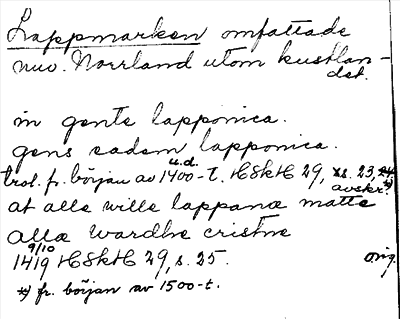 Lappmarken omfattade
nuv. Norrland utom kustlan-
det.
in gente lapponica.
gens eadem lapponica.
u.d.
trol. fr. början av 1400-t. HSkH 29, s. 23, 24.
avskr. *)
at alle wille lappanæ matte
allæ wardhe cristne
9/10
1419 HSkH 29, s. 25. orig.
*) fr. början av 1500-t.